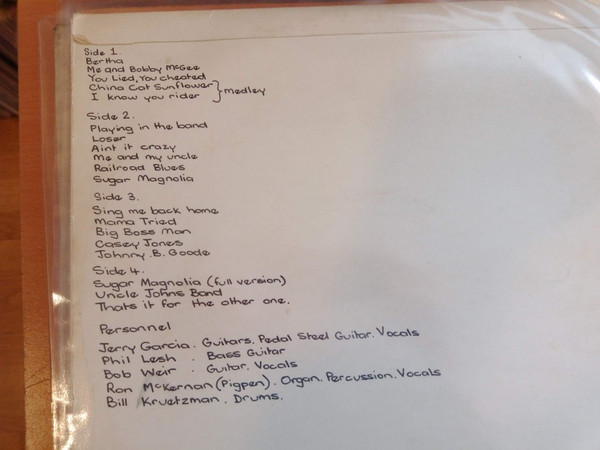 Side 1.
Bertha
Me and Bobby McGee
You Lied, You cheated
China Cat Sunflower
I know you rider } medley
Side 2.
Playing in the band
Loser
Aint it crazy
Me and my uncle
Railroad Blues
Sugar Magnolia
Side 3.
Sing me back home
Mama Tried
Big Boss Man
Casey Jones
Johnny .B. Goode
Side 4.
Sugar Magnolia (full version)
Uncle Johns Band
Thats it for the other one.
Personnel
Jerry Garcia. Guitars. Pedal Steel Guitar. Vocals
Phil Lesh . Bass Guitar
Bob Weir . Guitar. Vocals
Ron McKernan (Pigpen). Organ. Percussion. Vocals
Bill Kruetzman . Drums.